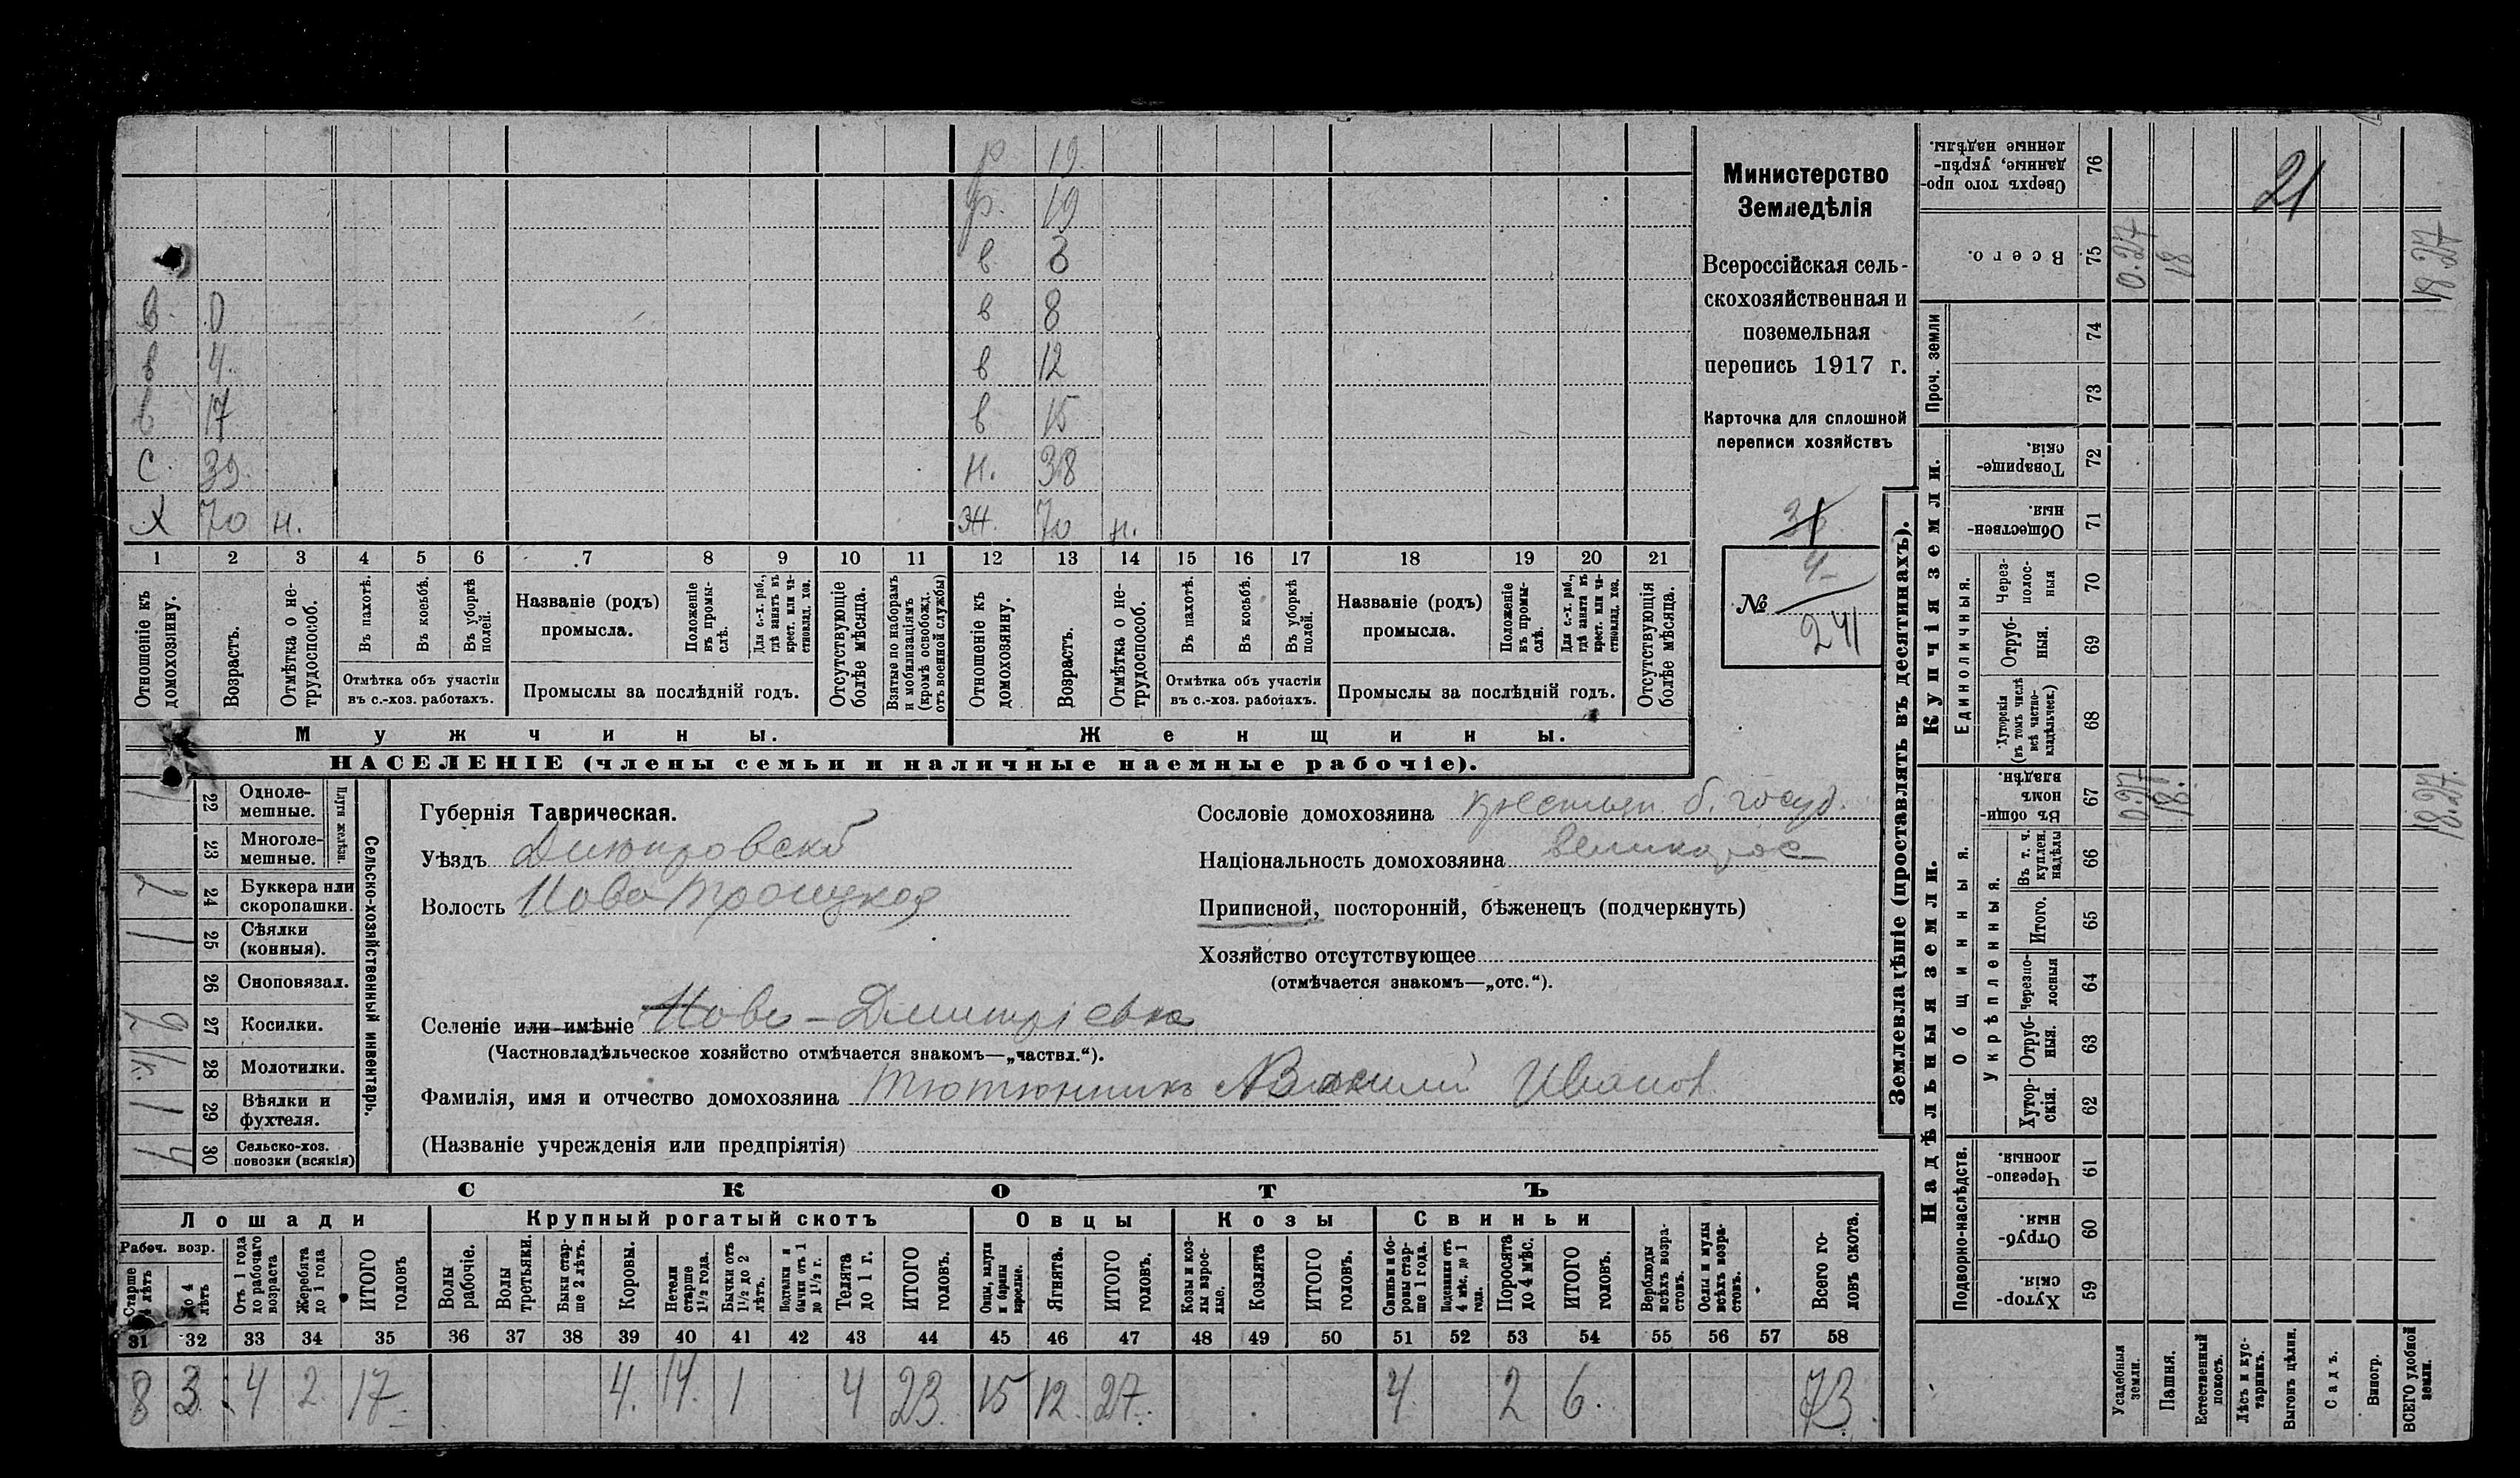 р 19.
р. 19
в 3
в. 0 в 8
в 4. в 12
в 17 в 15
с. 39. н. 38
х 70 н. ж. 70 н.
1 2 3 4 5 6 7 8 9 10 11 12 13 14 15 16 17 18 19 20 21
Отношеніе къ домохозяину.
Возрастъ.
Отмѣтка о не-
трудоспособ.
Въ пахотѣ.
Въ косьбѣ.
Въ уборкѣ полей.
Отмѣтка объ участіи
въ с.-хоз. работахъ.
Названіе (родъ)
промысла.
Положеніе въ промы-
слѣ.
Для с.-х. раб., гдѣ занятъ въ крест. или ча-
стновлад. хоз.
Промыслы за послѣдній годъ.
Отсутствующіе болѣе мѣсяца.
Взятые по наборамъ и мобилизаціямъ (кромѣ освобожд. отъ военной службы)
Отношеніе къ домохозяину.
Возрастъ.
Отмѣтка о не-
трудоспособ.
Въ пахотѣ.
Въ косьбѣ.
Въ уборкѣ полей.
Отмѣтка объ участіи
въ с.-хоз. работахъ.
Названіе (родъ)
промысла.
Положеніе въ промы-
слѣ.
Для с.-х. раб., гдѣ занята въ крест. или ча-
стновлад. хоз.
Промыслы за послѣдній годъ.
Отсутствующія болѣе мѣсяца.
Мужчины. Женщины.
НАСЕЛЕНІЕ (члены семьи и наличные наемные рабочіе).
Министерство
Земледѣлія
Всероссійская сель-
скохозяйственная и
поземельная
перепись 1917 г.
Карточка для сплошной
переписи хозяйствъ
№ 4
241
Сельско-хозяйственный инвентарь.
Плуги желѣзн.
1 22 Одноле-
мешные.
23 Многоле-
мешные.
2 24 Буккера или
скоропашки.
1 25 Сѣялки
(конныя).
26 Сноповязал.
2 27 Косилки.
1 к. 28 Молотилки.
1 29 Вѣялки и
фухтеля.
4 30 Сельско-хоз.
повозки (всякія)
Губернія Таврическая.
Уѣздъ Днѣпровскій
Волость Ново Троицкая
Селеніе или имѣніе Ново-Дмитріевка
(Частновладѣльческое хозяйство отмѣчается знакомъ—„частвл.“).
Фамилія, имя и отчество домохозяина Тютюнникъ Василій Иванов
(Названіе учрежденія или предпріятія)
Сословіе домохозяина крестьян. б. госуд.
Національность домохозяина великорос
Приписной, посторонній, бѣженецъ (подчеркнуть)
Хозяйство отсутствующее
(отмѣчается знакомъ—„отс.“).
СКОТЪ
Лошади Крупный рогатый скотъ Овцы Козы Свиньи
Рабоч. возр.
Старше 4 лѣтъ
до 4 лѣтъ
Отъ 1 года до рабочаго возраста
Жеребята до 1 года
ИТОГО головъ
Волы рабочіе.
Волы третьяки.
Быки стар-
ше 2 лѣтъ.
Коровы.
Нетели старше 1½ года.
Бычки отъ 1½ до 2 лѣтъ.
Подтелки и бычки отъ 1 до 1½ г.
Телята до 1 г.
ИТОГО головъ.
Овцы, валухи и бараны взрослые.
Ягнята.
ИТОГО головъ.
Козы и коз-
лы взрос-
лые.
Козлята
ИТОГО головъ.
Свиньи и бо-
ровы стар-
ше 1 года.
Подсвинки отъ 4 мѣс. до 1 года.
Поросята до 4 мѣс.
ИТОГО головъ.
Верблюды всѣхъ возра-
стовъ.
Ослы и мулы всѣхъ возра-
стовъ.
Всего го-
ловъ скота.
31 32 33 34 35 36 37 38 39 40 41 42 43 44 45 46 47 48 49 50 51 52 53 54 55 56 57 58
8 3. 4 2. 17 4. 14. 1 4 23. 15 12. 27. 4. 2 6. 73.
Землевладѣніе (проставлять въ десятинахъ).
Надѣльныя земли. Купчія земли. Проч. земли
Подворно-наслѣдств. Общинныя. Укрѣпленныя. Единоличныя.
59 Хутор-
скія.
60 Отруб-
ныя.
61 Черезпо-
лосныя.
62 Хутор-
скія.
63 Отруб-
ныя.
64 Черезпо-
лосныя
65 Итого.
66 Въ т. ч. куплен. надѣлы
67 Въ общин-
номъ владѣн.
68 Хуторскія (въ томъ числѣ всѣ частно-
владѣльческ.)
69 Отруб-
ныя.
70 Через-
полос-
ныя
71 Обществен-
ныя.
72 Товарище-
скія.
73
74
75 Всего.
76 Сверхъ того про-
данные, укрѣп-
ленные надѣлы.
Усадебныя земли.
Пашня.
Естественный покосъ.
Лѣсъ и кус-
тарникъ.
Выгонъ цѣлин.
Садъ.
Виногр.
ВСЕГО удобной земли.
0.27 18. 18.27.
0.27 18 18.27
21